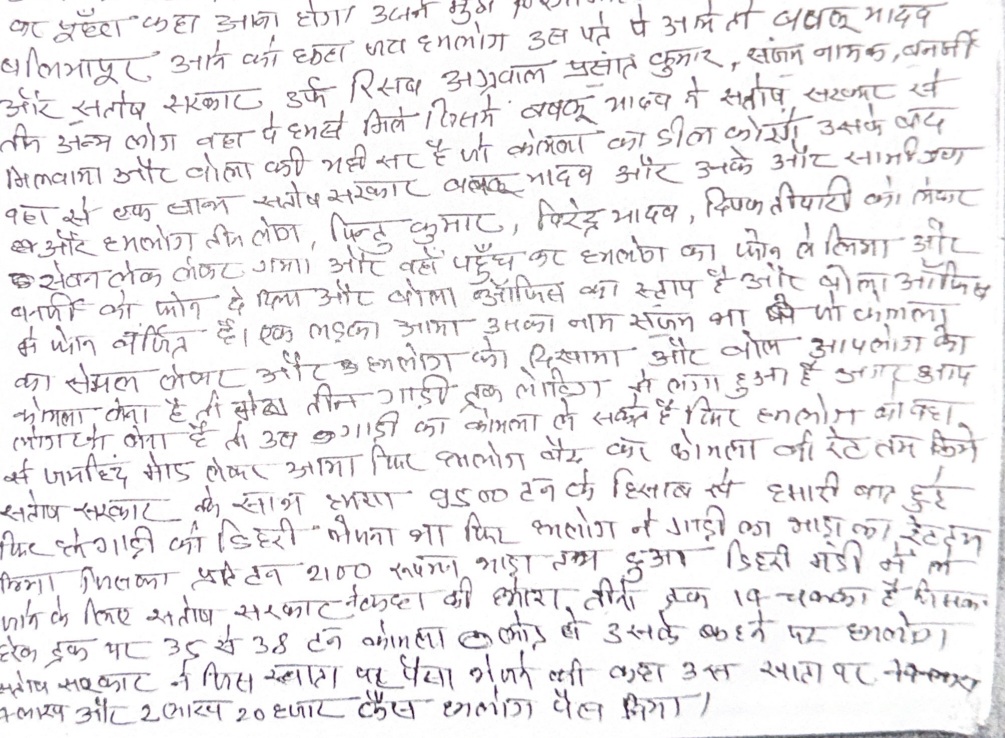 कर पूँछा कहा आना होगा उसने मुझे
बलिमापूर आने को कहा जब हमलोग उस पते पे आमे तो बबलू मादव
और सतोष सरकार उर्फ रिसब अग्रवाल प्रसांत कुमार, संजम नामक, बनर्जी
तीन अन्म लोग वहा पे हमसे मिले जिसमे बबलू मादव ने सतोष सरकार से
मिलवामा और बोला की मही सर है जो कोमला का डील करेगें उसके बाद
वहा से एक साथ सतोष सरकार बबलू मादव और उनके और
और हमलोग तीन लोग, पिन्टु कुमार, विरेन्द्र मादव, दिपक तीवारी को लेकर
सेवन लेक लेकर गमा। और वहाँ पहुँच कर हमलोग का फोन ले लिमा और
बनर्जी को फोन दे दिमा और बोला ऑफिस का स्टाप है और बोला ऑफिस
मे फोन वर्जित है। एक लड़का आमा उसका नाम संजम था जो कोमला
का सेम्पल लेकर और हमलोग को दिखामा और बोल आपलोग को
कोमला लेना है तो तीन गाड़ी ट्रक लोडिंग मे लगा हुआ है अगर आप
लोग को लेना है तो उस गाड़ी का कोमला ले सकते है फिर हमलोग को वहा
से जमहिंद मोड़ लेकर आमा फिर हमलोग बैठ कर कोमला की रेट तम किमे
सतोष सरकार के साथ हमारा 9500 टन के हिसाब से हमारी बात हुई
फिर गाड़ी को डिहरी भेजना था फिर हमलोग ने गाड़ी का भाड़ा का रेट तम
किमा जिसका प्रति टन 2100 रूपमा भाड़ा तम हुआ डिहरी मंडी मे ले
जाने के लिए सतोष सरकार ने कहा की हमारा तीनो ट्रक 14 चक्का है जिसक
हरेक ट्रक पर 35 से 38 टन कोमला लोड हो उसके कहने पर हमलोग
सतोष सरकार ने जिस खाता पर पैसा भेजने को कहा उस खाता पर
लाख और 2 लाख 20 हजार कैस हमलोग पैस किमा।